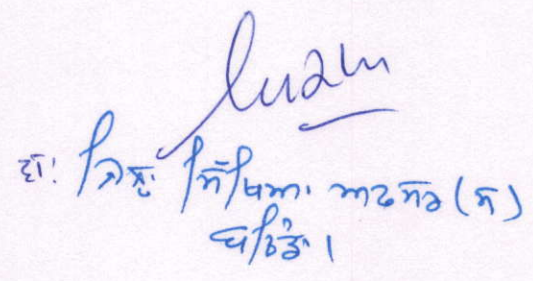 ਜ਼ਿਲ੍ਹਾ ਸਿੱਖਿਆ ਅਫਸਰ (ਸ)
ਬਠਿੰਡਾ।